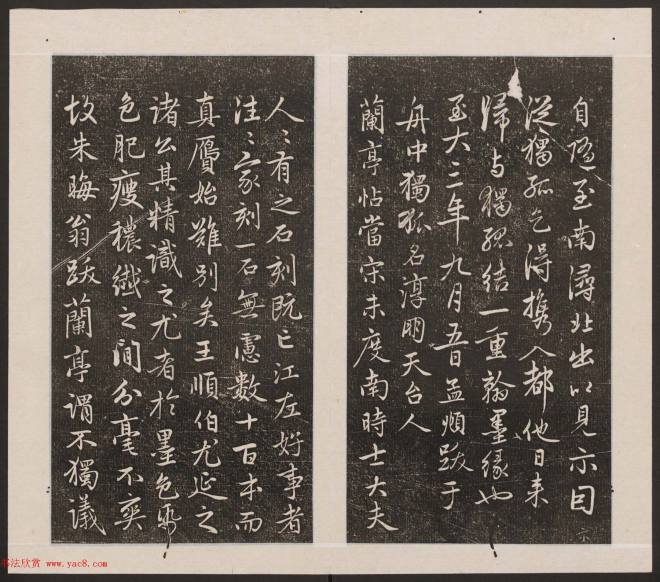 自隨至南潯北出以見示因
從獨孤乞得携入都他日來
歸与獨孤結一重翰墨緣也
至大三年九月五日孟頫跋于
舟中獨孤名淳朋天台人
蘭亭帖當宋未度南時士大夫
人〻有之石刻既亡江左好事者
往〻家刻一石無慮數十百本而
真贗始難別矣王順伯尤延之
諸公其精識之尤者於墨色帋
色肥瘦穠纖之間分毫不爽
故朱晦翁跋蘭亭謂不獨議
书法欣赏 www.yac8.com